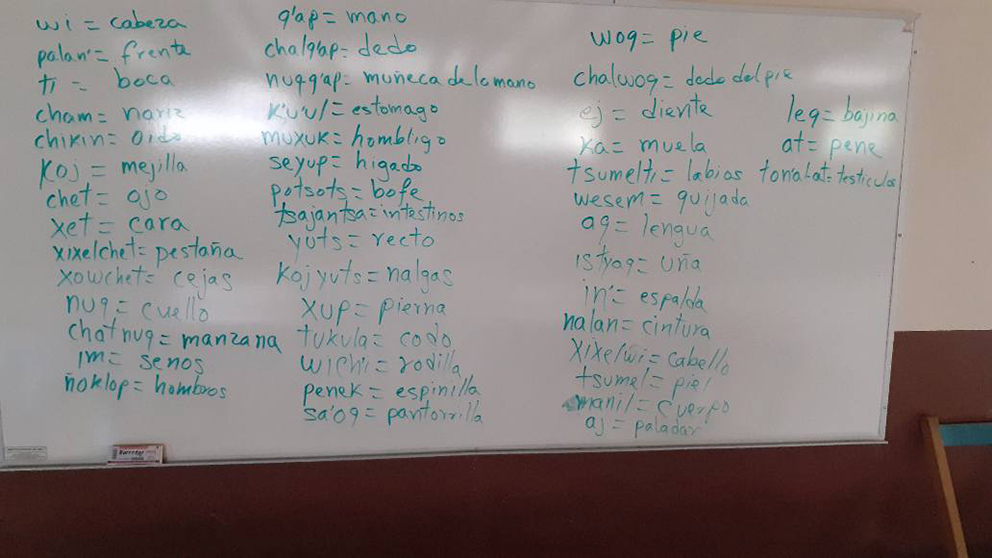 wi = cabeza
palan' = frente
ti = boca
cham = nariz
chikin = oido
koj = mejilla
chet = ojo
xet = cara
xixelchet = pestaña
xowchet = cejas
nuq = cuello
chatnuq = manzana
im = senos
ñoklop = hombros
q'ap = mano
chalq'ap = dedo
nuqq'ap = muñeca de la mano
k'u'ul = estomago
muxuk = hombligo
seyup = higado
potsots = bofe
tsajantsa = intestinos
yuts = recto
kojyuts = nalgas
xup = pierna
tukula = codo
wich'i = rodilla
penek = espinilla
sa'oq = pantorrilla
woq = pie
chalwoq = dedo del pie
ej = diente
ka = muela
tsumelti = labios
wesem = quijada
aq = lengua
istyoq = uña
in' = espalda
nalan = cintura
xixelwi = cabello
tsumel = piel
manil = cuerpo
aj = paladar
leq = bajina
at = pene
tonalat = testiculos
Borrador